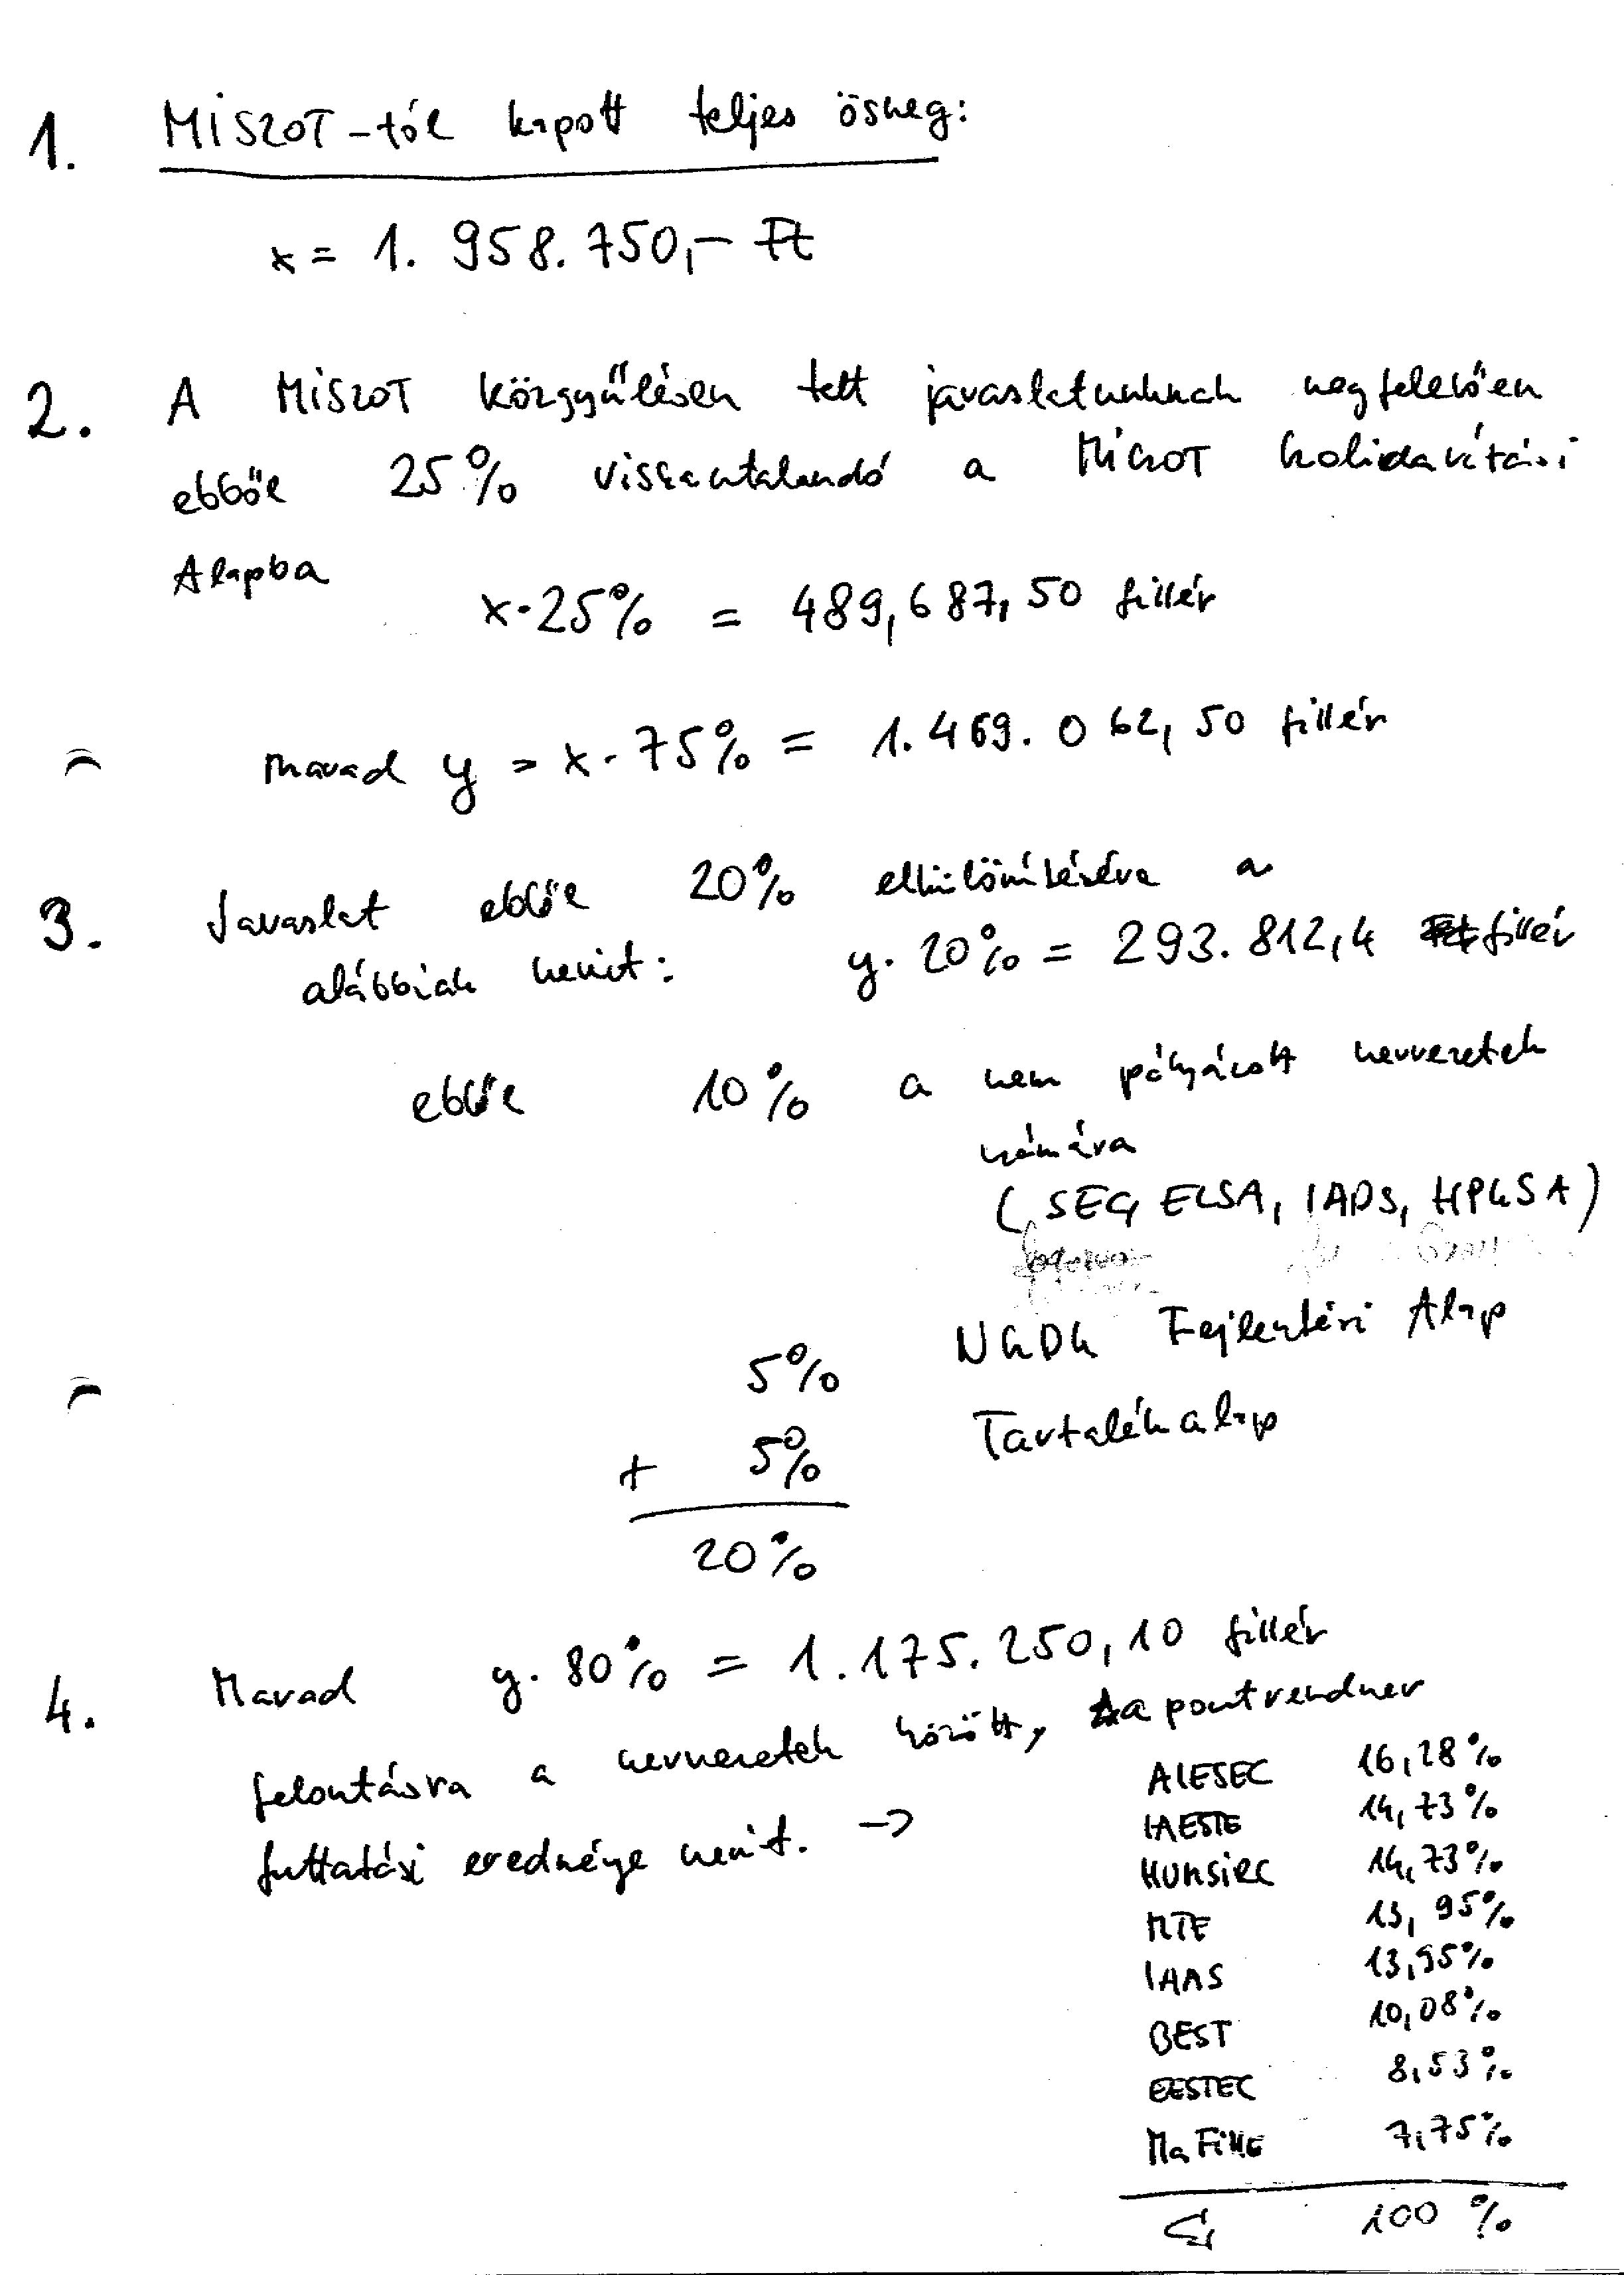 1. MISZOT-tól kapott teljes összeg:
x = 1. 958. 750,- Ft
2. A MISZOT közgyűlésen tett javaslatunknak megfelelően
ebből 25% visszautalandó a MISZOT Szolidaritási
Alapba
x·25% = 489,687,50 fillér
marad y = x·75% = 1.469.062,50 fillér
3. Javaslat ebből 20% elkülönítésére a
alábbiak szerint: y·20% = 293.812,4 fillér
ebből 10% a nem pályázott szervezetek
számára
(SEG, ELSA, IADS, HPhSA)
5% NGDG Fejlesztési Alap
+ 5% Tartalékalap
20%
4. Marad y·80% = 1.175.250,10 fillér
felosztásra a szervezetek között, a pontrendszer
futtatási eredménye szerint. →
AIESEC 16,28%
IAESTE 14,73%
HUNSIRC 14,73%
MTE 13,95%
IAAS 13,95%
BEST 10,08%
EESTEC 8,53%
MaFiHE 7,75%
Σ 100 %